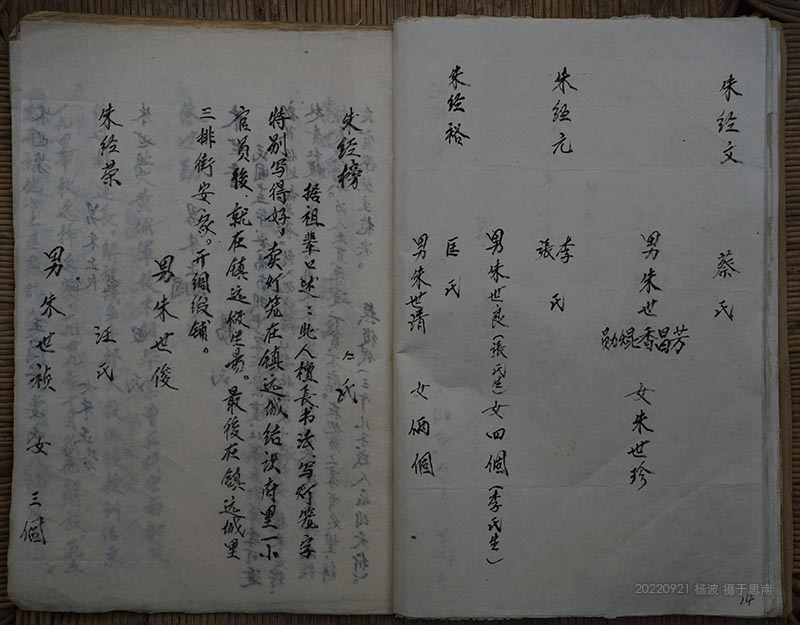 朱经文 蔡氏
男朱世芳昌香焜勋 女朱世珍
朱经元 李張氏
男朱世良(張氏生)女四個(李氏生)
朱经裕 匡氏
男朱世靖 女俩個
朱经榜 氏
据祖辈口述:此人擅長书法、写灯笼字
特别写得好,卖灯笼在镇远城结识府里一小
官员後、就在镇远做生易。最後在镇远城里
三排街安家。开绸缎铺。
男朱世俊
朱经荣 汪氏
男朱世祯 女三個
14
20220921 杨波 摄于思南